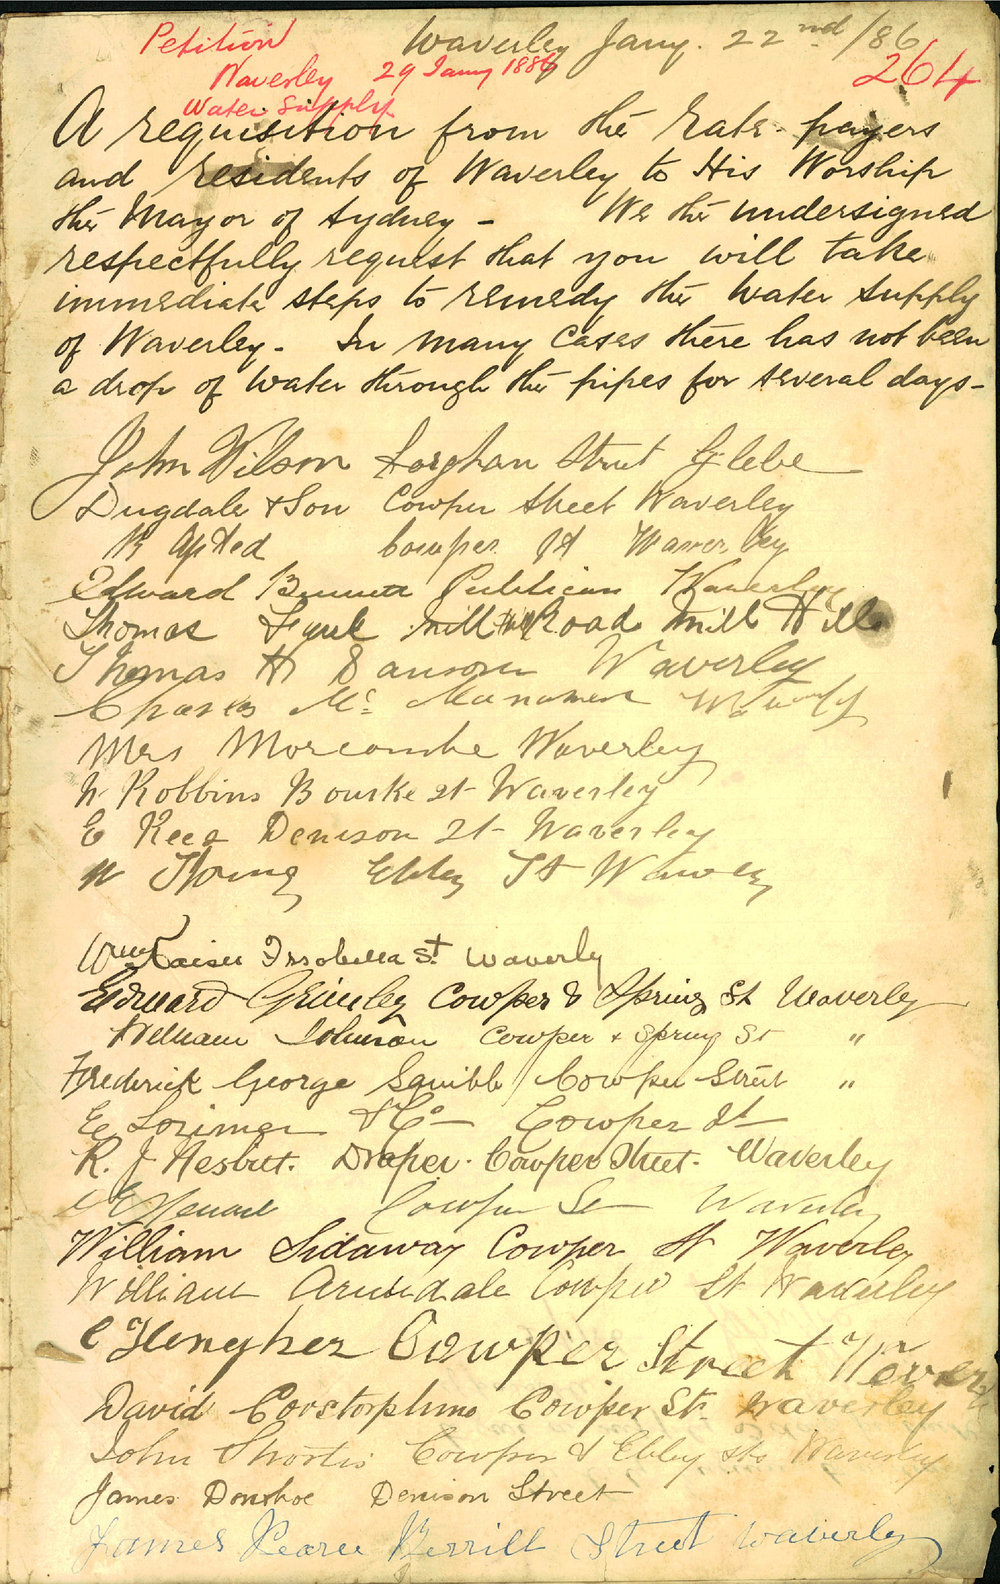 Petition
Waverley Jany. 22nd /86
Waverley 29 Jany 1886
264
Water Supply
A requisition from the Rate-payers
and residents of Waverley to His Worship
the Mayor of Sydney - We the undersigned
respectfully request that you will take
immediate steps to remedy the water supply
of Waverley - In many cases there has not been
a drop of water through the pipes for several days -
John Wilson Street Glebe
Dugdale & Son Cowper Street Waverley
Cowper St Waverley
Edward Bennett Publican Waverley
Thomas Mill Hill Road Mill Hill
Thomas H Sanson Waverley
Charles Mc Waverley
Mrs Morcombe Waverley
W Robbins Bourke St Waverley
E Denison St Waverley
W Young Ebley St Waverley
Wm Issobella St. Waverly
Edward Grimley Cowper & Spring St Waverley
William Johnson Cowper & Spring St "
Frederick George Squibb Cowper Street "
E Lorimer & Co Cowper St
R. J Nesbitt. Draper. Cowper Street. Waverley
Cowper St Waverley
William Sidaway Cowper St Waverley
William Cowper St Waverley
C Cowper Street
David Corstorphine Cowper St. Waverley
John Shortis Cowper & Ebley sts Waverley
James Donohoe Denison Street
James Pearce Street Waverley